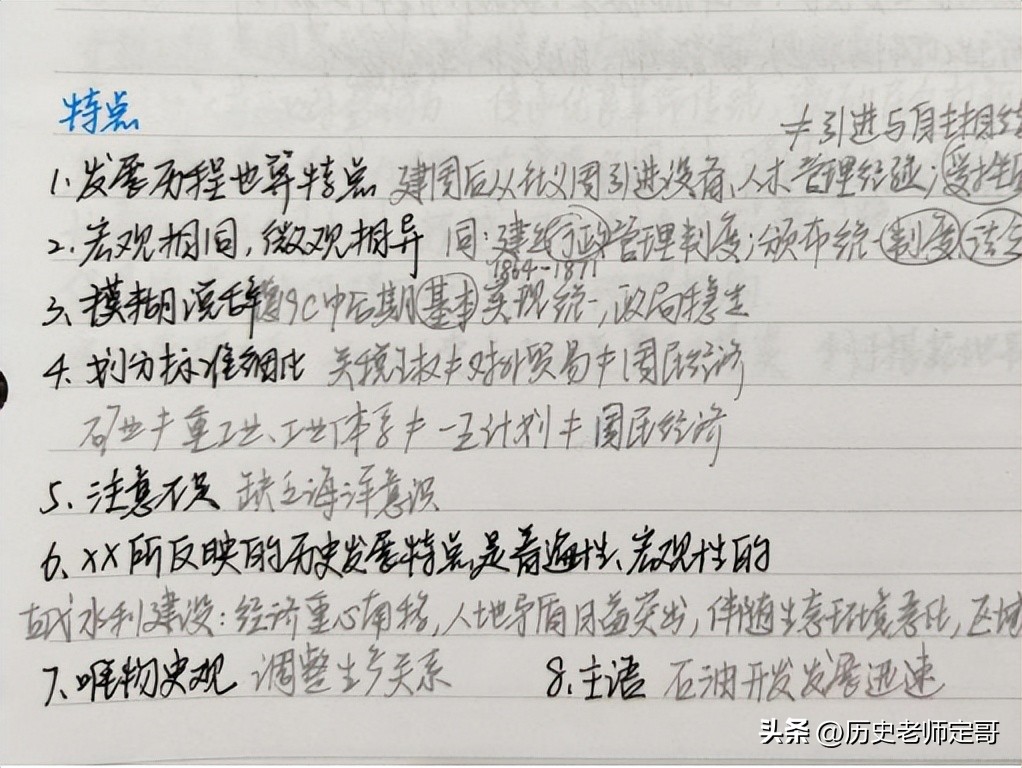 特点
≠引进与自主相结
1、发展历程也算特点 建国后从社义国引进设备、人才、管理经验;受挫
2、宏观相同,微观相异 同:建红行政管理制度;颁布统一制度、法令
1864-1871
3、模糊说辞 19C中后期基本实现统一,政局稳定
4、划分标准细化 关税主权≠对外贸易≠国民经济
矿业≠重工业、工业体系≠一五计划≠国民经济
5、注意不足 缺乏海洋意识
6、XX所反映的历史发展特点,是普遍性、宏观性的
水利建设:经济重心南移,人地矛盾日益突出,伴随生态环境恶化,区域
7、唯物史观 调整生产关系 8、主语 石油开发发展迅速
头条 @历史老师定哥